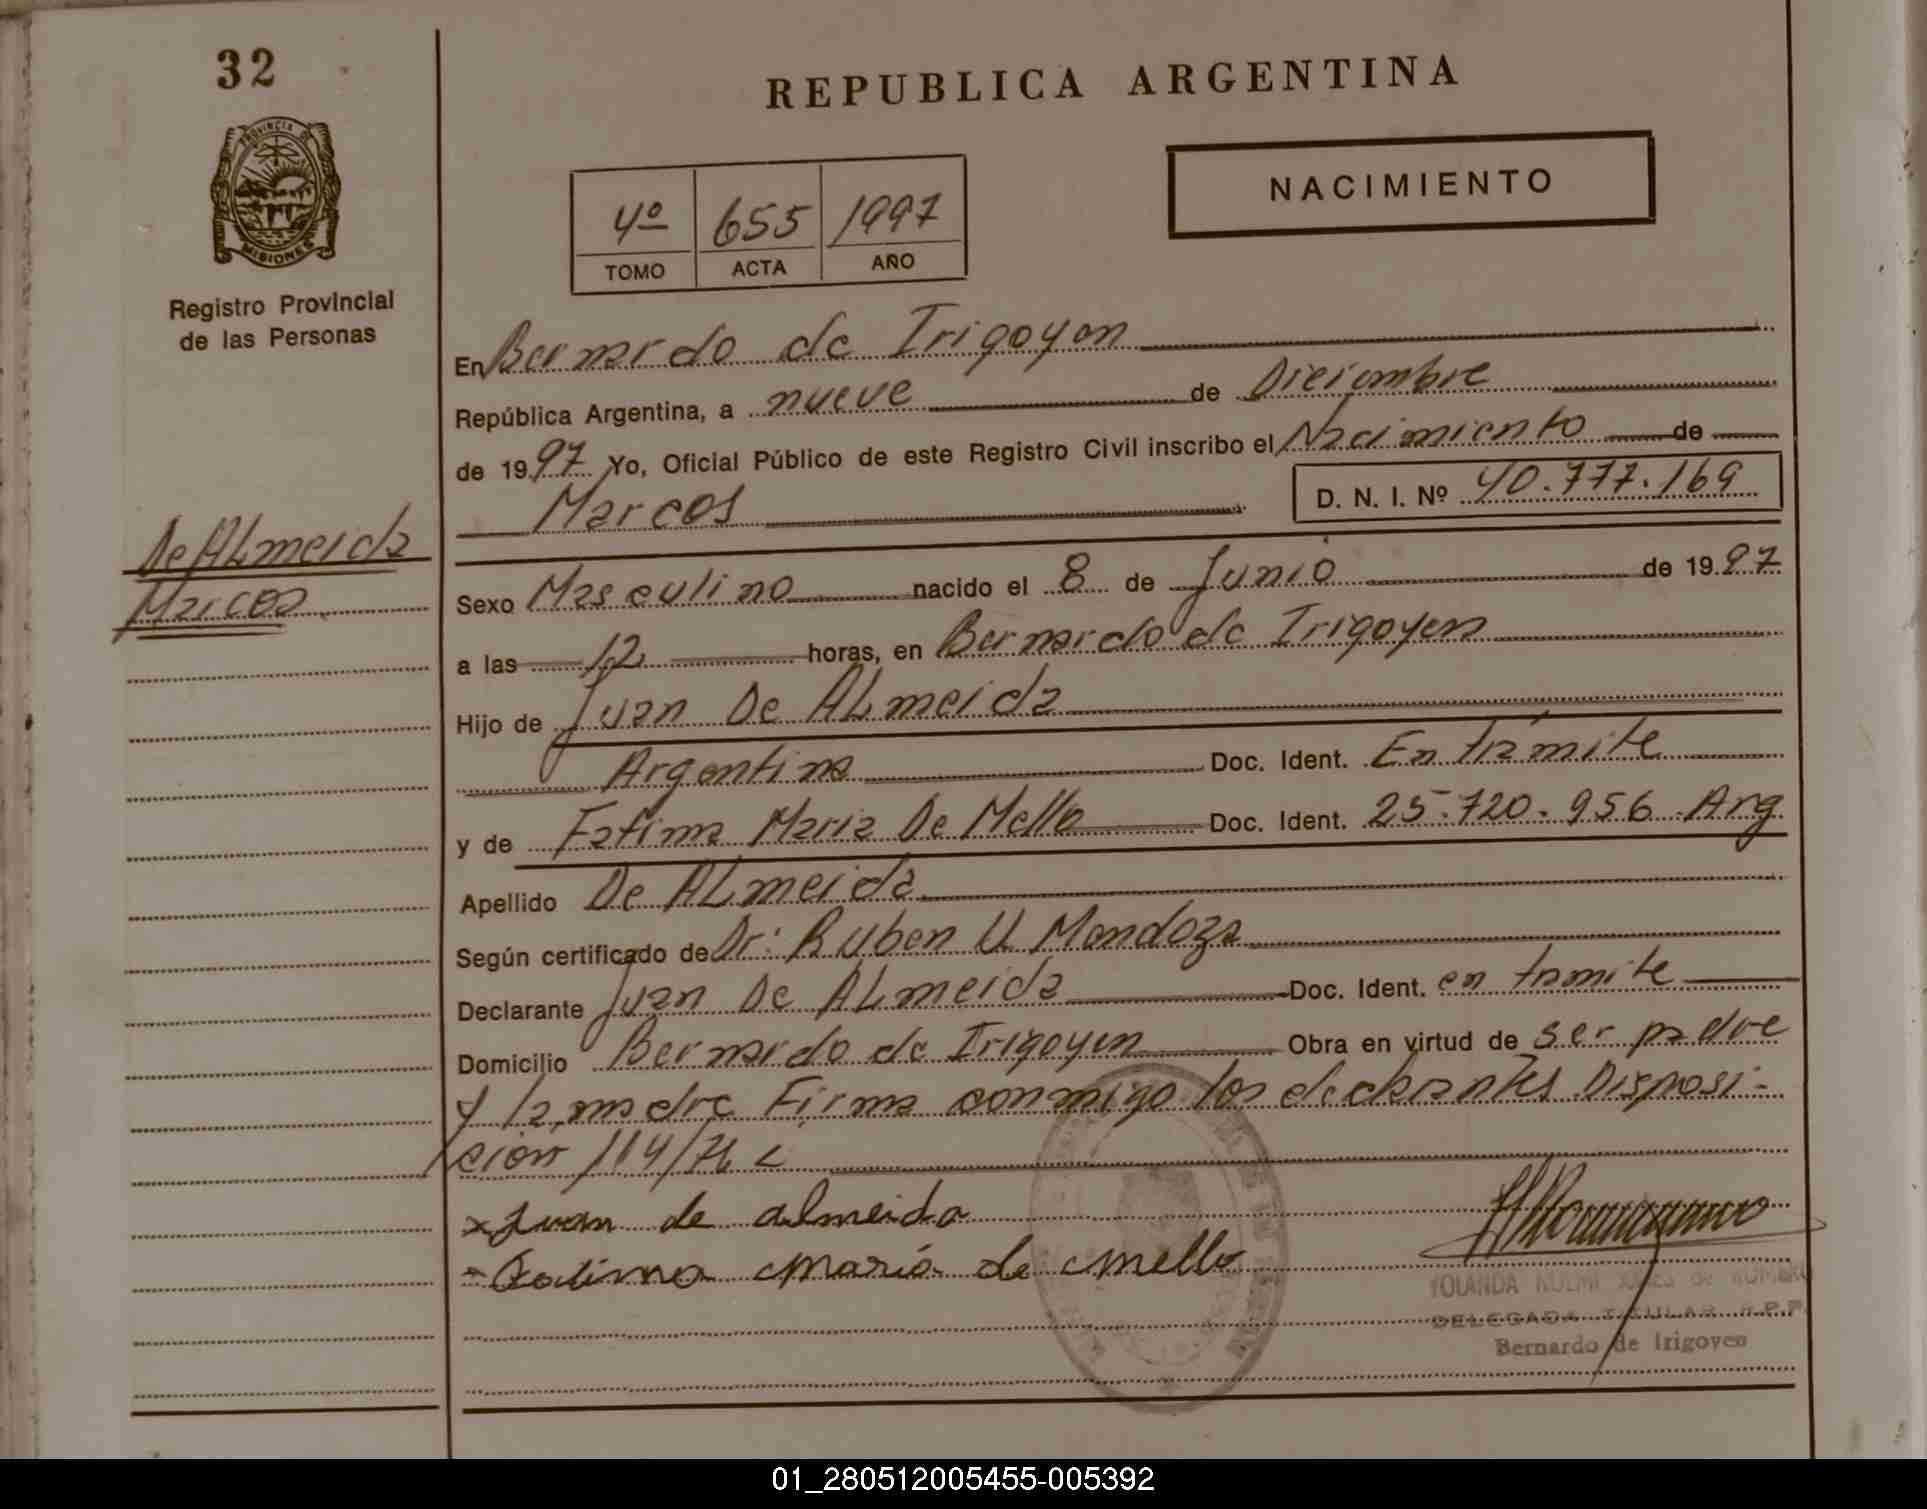 32
REPUBLICA ARGENTINA
PROVINCIA DE
MISIONES
NACIMIENTO
4º 655 1997
TOMO ACTA AÑO
Registro Provincial
de las Personas
En Bernardo de Irigoyen
República Argentina, a nueve de Diciembre
de 1997 Yo, Oficial Público de este Registro Civil inscribo el Nacimiento de
Marcos D. N. I. Nº 40.777.169
De ALmeida
Marcos
Sexo Masculino nacido el 8 de Junio de 1997
a las 12 horas, en Bernardo de Irigoyen
Hijo de Juan De ALmeida
Argentina Doc. Ident. En trámite
y de Fatima Maria De Mello Doc. Ident. 25.720.956 Arg
Apellido De ALmeida
Según certificado de Dr: Ruben U Mendoza
Declarante Juan De ALmeida Doc. Ident. en tramite
Domicilio Bernardo de Irigoyen Obra en virtud de ser padre
y la madre Firma conmigo los declarantes Disposi-
cion 114/76
x Juan de almeida
Fatima Maria de Mello
YOLANDA NOEMI de
DELEGADA TITULAR R.P.P.
Bernardo de Irigoyen
01_280512005455-005392